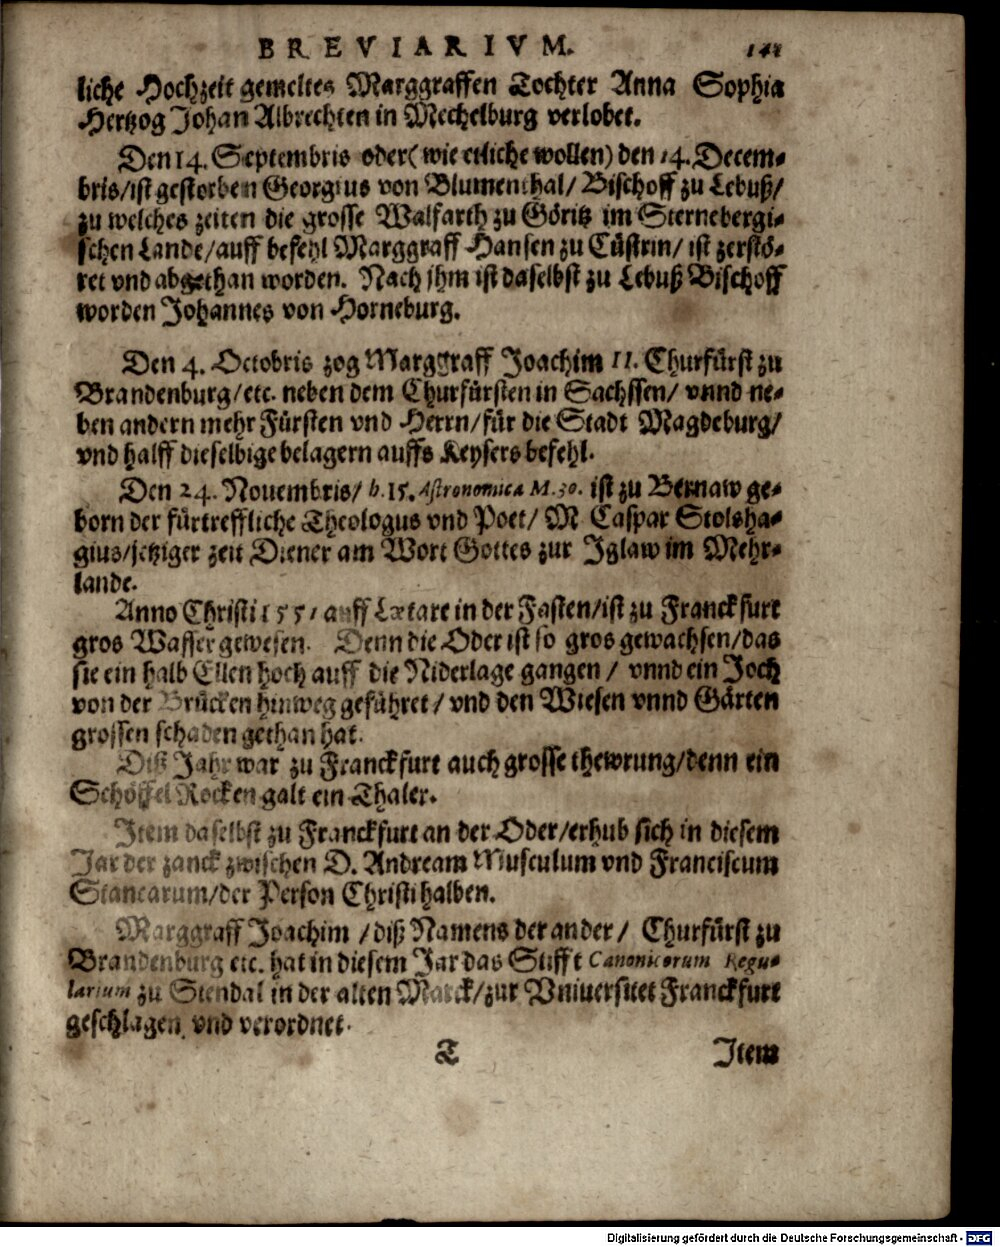 BREVIARIVM. 141
liche Hochzeit gemeltes Marggraffen Tochter Anna Sophia
Hertzog Johan Albrechten in Mechelburg verlobet.
Den 14. Septembris oder (wie etliche wollen) den 14. Decem-
bris/ist gestorben Georgius von Blumenthal/ Bischoff zu Lebuß/
zu welches zeiten die grosse Walfarth zu Göritz im Sternebergi-
schen Lande/auff befehl Marggraff Hansen zu Cüstrin/ ist zerstö-
ret vnd abgethan worden. Nach jhm ist daselbst zu Lebuß Bischoff
worden Johannes von Horneburg.
Den 4. Octobris zog Marggraff Joachim II. Churfürst zu
Brandenburg/etc. neben dem Churfürsten in Sachssen/ vnnd ne-
ben andern mehr Fürsten vnd Herrn/für die Stadt Magdeburg/
vnd halff dieselbige belagern auffs Keysers befehl.
Den 24. Nouembris/ h. 15. Astronomica M. 30. ist zu Bernaw ge-
born der fürtreffliche Theologus vnd Poet/ M Caspar Stolsha-
gius/jetziger zeit Diener am Wort Gottes zur Iglaw im Mehr-
lande.
Anno Christi 1551 auff Lætare in der Fasten/ist zu Franckfurt
gros Wasser gewesen. Denn die Oder ist so gros gewachsen/das
sie ein halb Ellen hoch auff die Niderlage gangen / vnnd ein Joch
von der Brücken hinweg geführet/ vnd den Wiesen vnnd Gärten
grossen schaden gethan hat.
Diß Jahr war zu Franckfurt auch grosse thewrung/denn ein
Schöffel Rocken galt ein Thaler.
Item daselbst zu Franckfurt an der Oder/erhub sich in diesem
Jar der zanck zwischen D. Andream Musculum vnd Franciscum
Stancarum/der Person Christi halben.
Marggraff Joachim /diß Namens der ander/ Churfürst zu
Brandenburg etc. hat in diesem Jar das Stifft Canonicorum Regu-
larium zu Stendal in der alten Marck/zur Vniuersitet Franckfurt
geschlagen vnd verordnet.
T Item
Digitalisierung gefördert durch die Deutsche Forschungsgemeinschaft - DFG